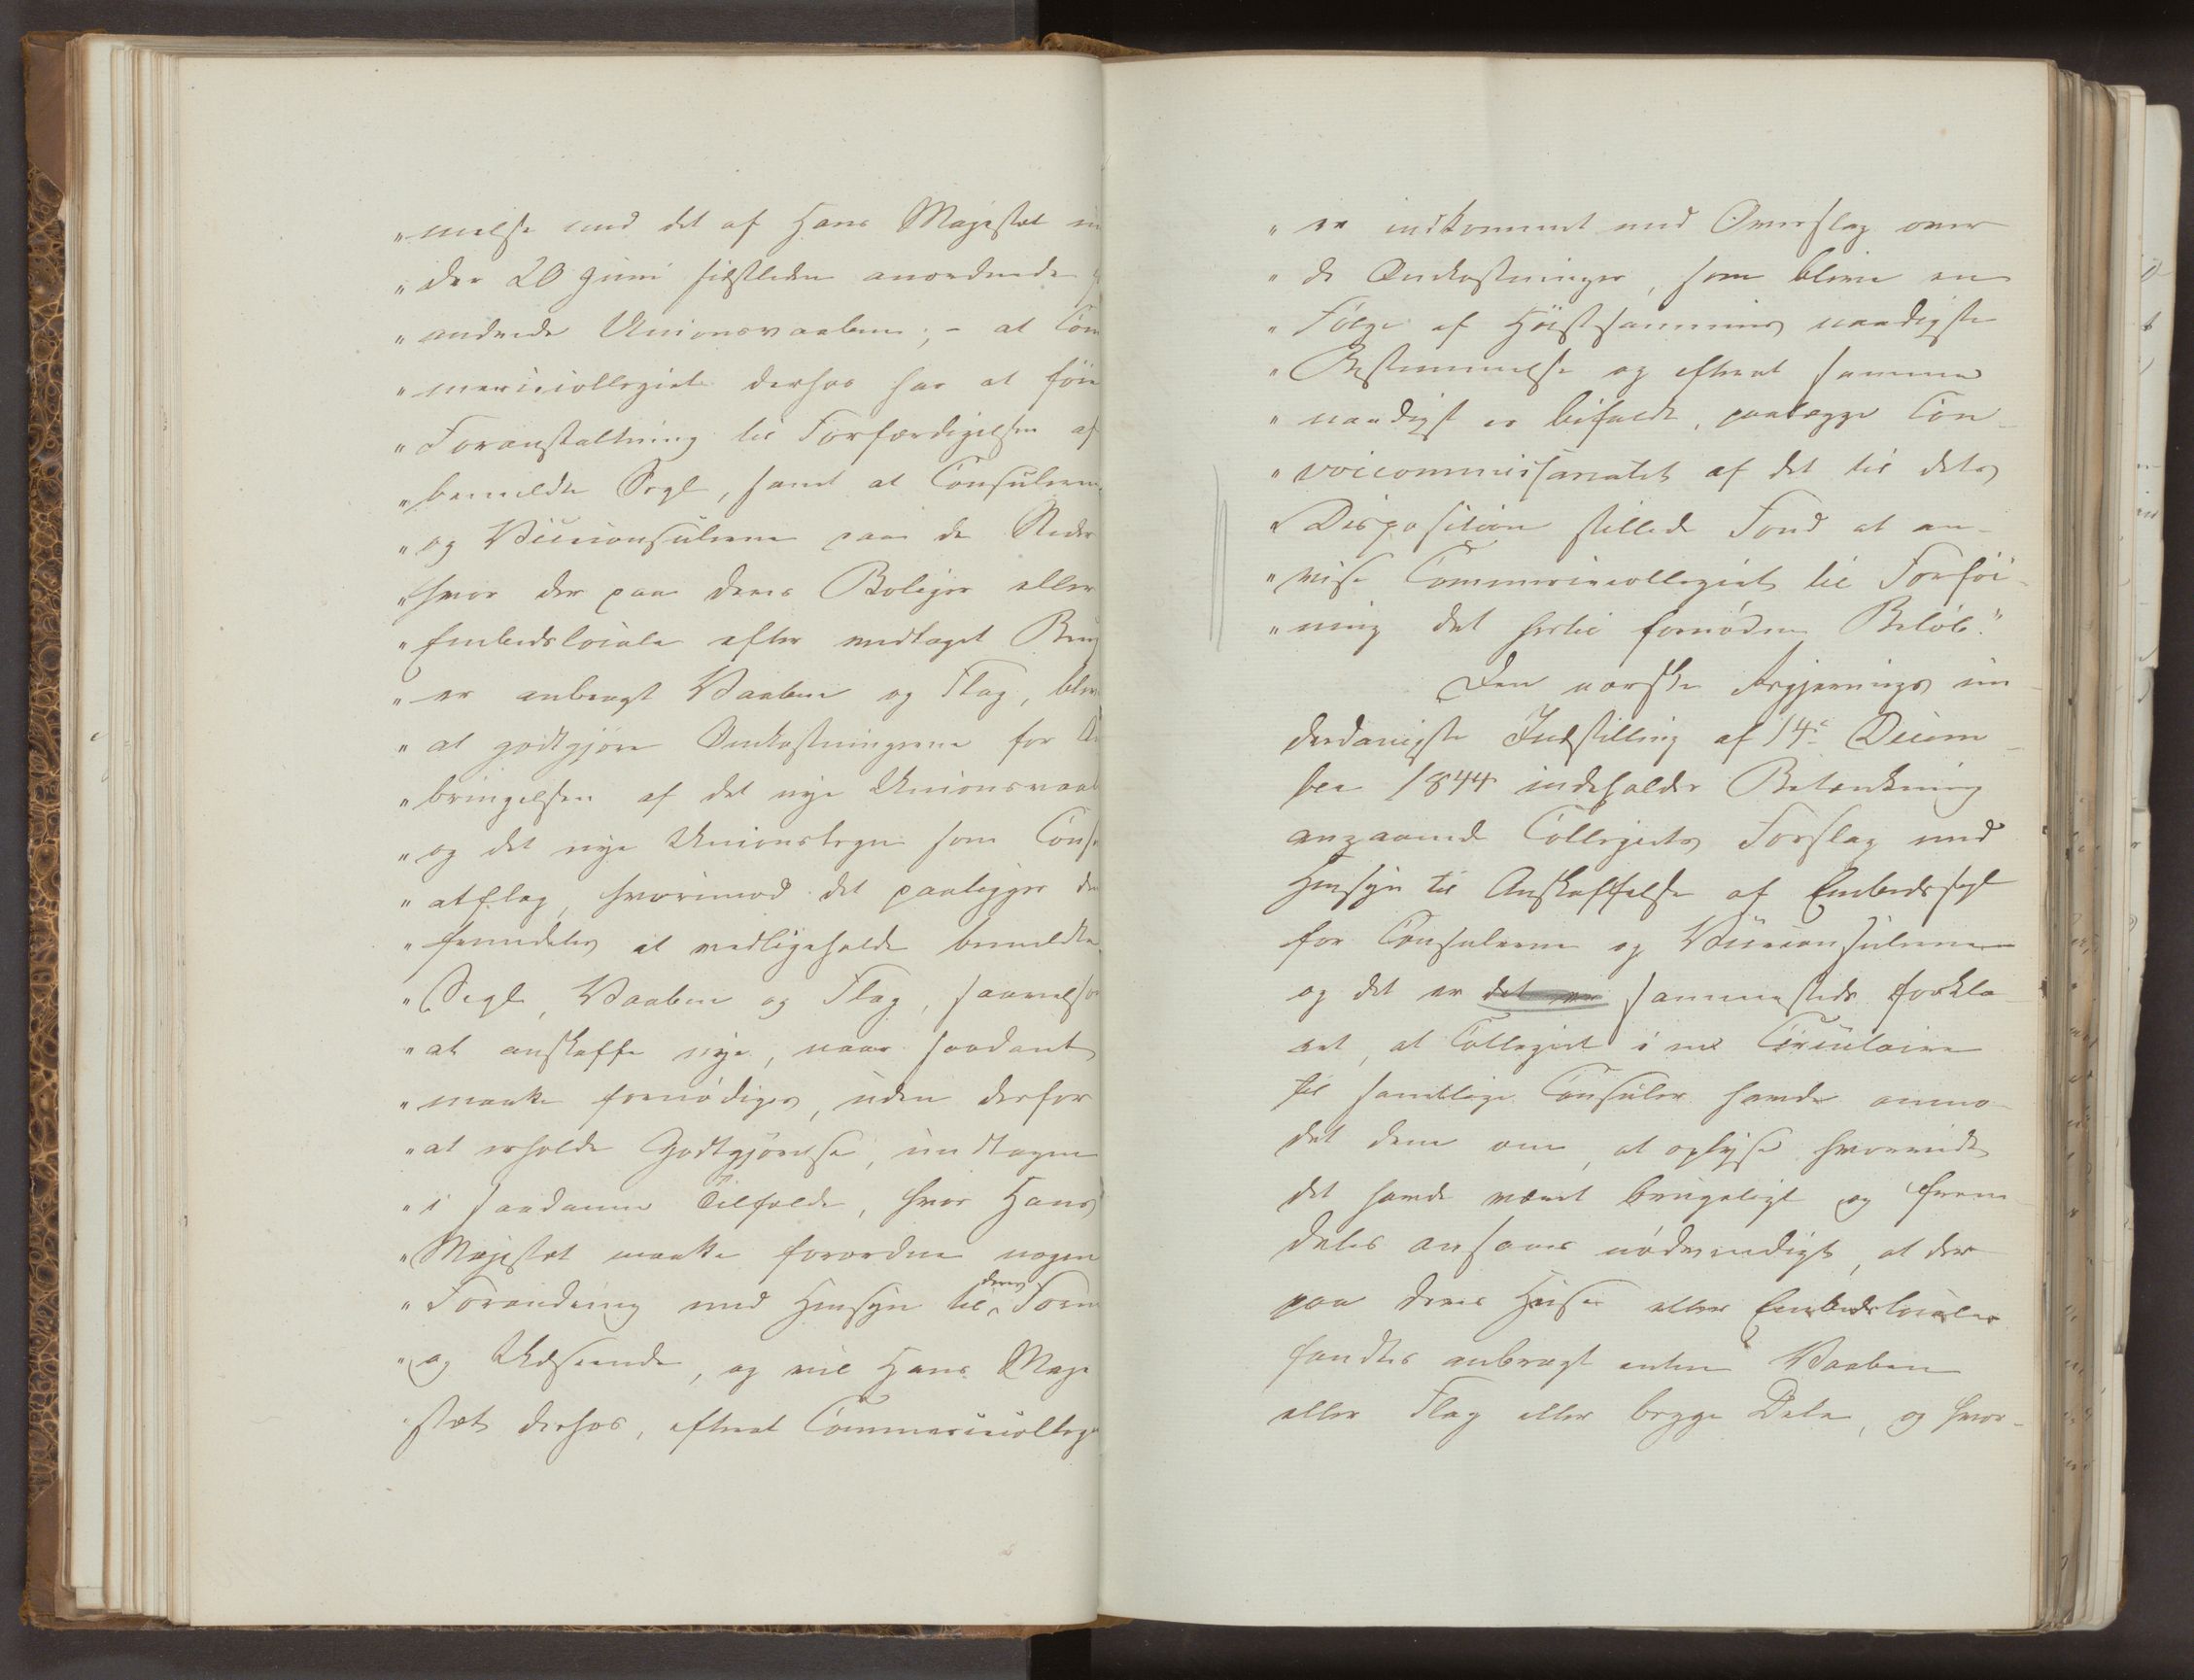 „melse med det af Hans Majestæt un
„der 20 Juni sidstleden anordnede
„andrede Unionsvaaben; – at Com
„mercecollegiet derhos har at föie
„Foranstaltning til Forfærdigelsen af
„bemeldte Segl, samt at Consulerne
„og Viceconsulerne paa de Steder
„hvor der paa deres Boliger eller
„Embedslocale efter vedtaget Brug
„er anbragt Vaaben og Flag, blive
„at godtgjöre Omkostningerne for An
„bringelsen af det nye Unionsvaab
„og det nye Unionstegn som Consu
„atflag, hvorimod det paaligger dem
„fremdeles at vedligeholde bemeldte
„Segl, Vaaben og Flag, saavelsom
„at anskaffe nye, naar saadant
„maatte fornödiges, uden derfor
„at erholde Godtgjörelse, undtagen
„i saadanne Tilfælde, hvor Hans
„Majestæt maatte forordne nogen
„Forandring med Hensyn til deres Form
„og Udseende, og vil Hans Maje
„stæt derhos, efterat Commercecollegi
„er indkommet med Overslag over
„de Omkostninger, som blive en
„Fölge af Höistsammes naadigste
„Bestemmelse og efterat samme
„naadigst er bifaldt, paalægge Con-
„voicommissariatet af det til dets
„Disposition stillede Fond at an-
„vise Commercecollegiet til Forföi-
„ning det hertil fornödne Belöb."
Den norske Regjerings un-
derdanigste Indstilling af 14e Decem-
ber 1844 indeholder Betænkning
angaaende Collegiets Forslag med
Hensyn til Anskaffelse af Embedssegl
for Consulerne og Viceconsulerne
og det er det er sammesteds forkla-
ret, at Collegiet i et Circulaire
til samtlige Consuler havde anmo-
det dem om, at oplyse hvorvidt
det havde været brugeligt og frem-
deles ansaaes nödvendigt, at der
paa deres Huse eller Embedslocaler
fandtes anbragt enten Vaaben
eller Flag eller begge Dele, og hvor-